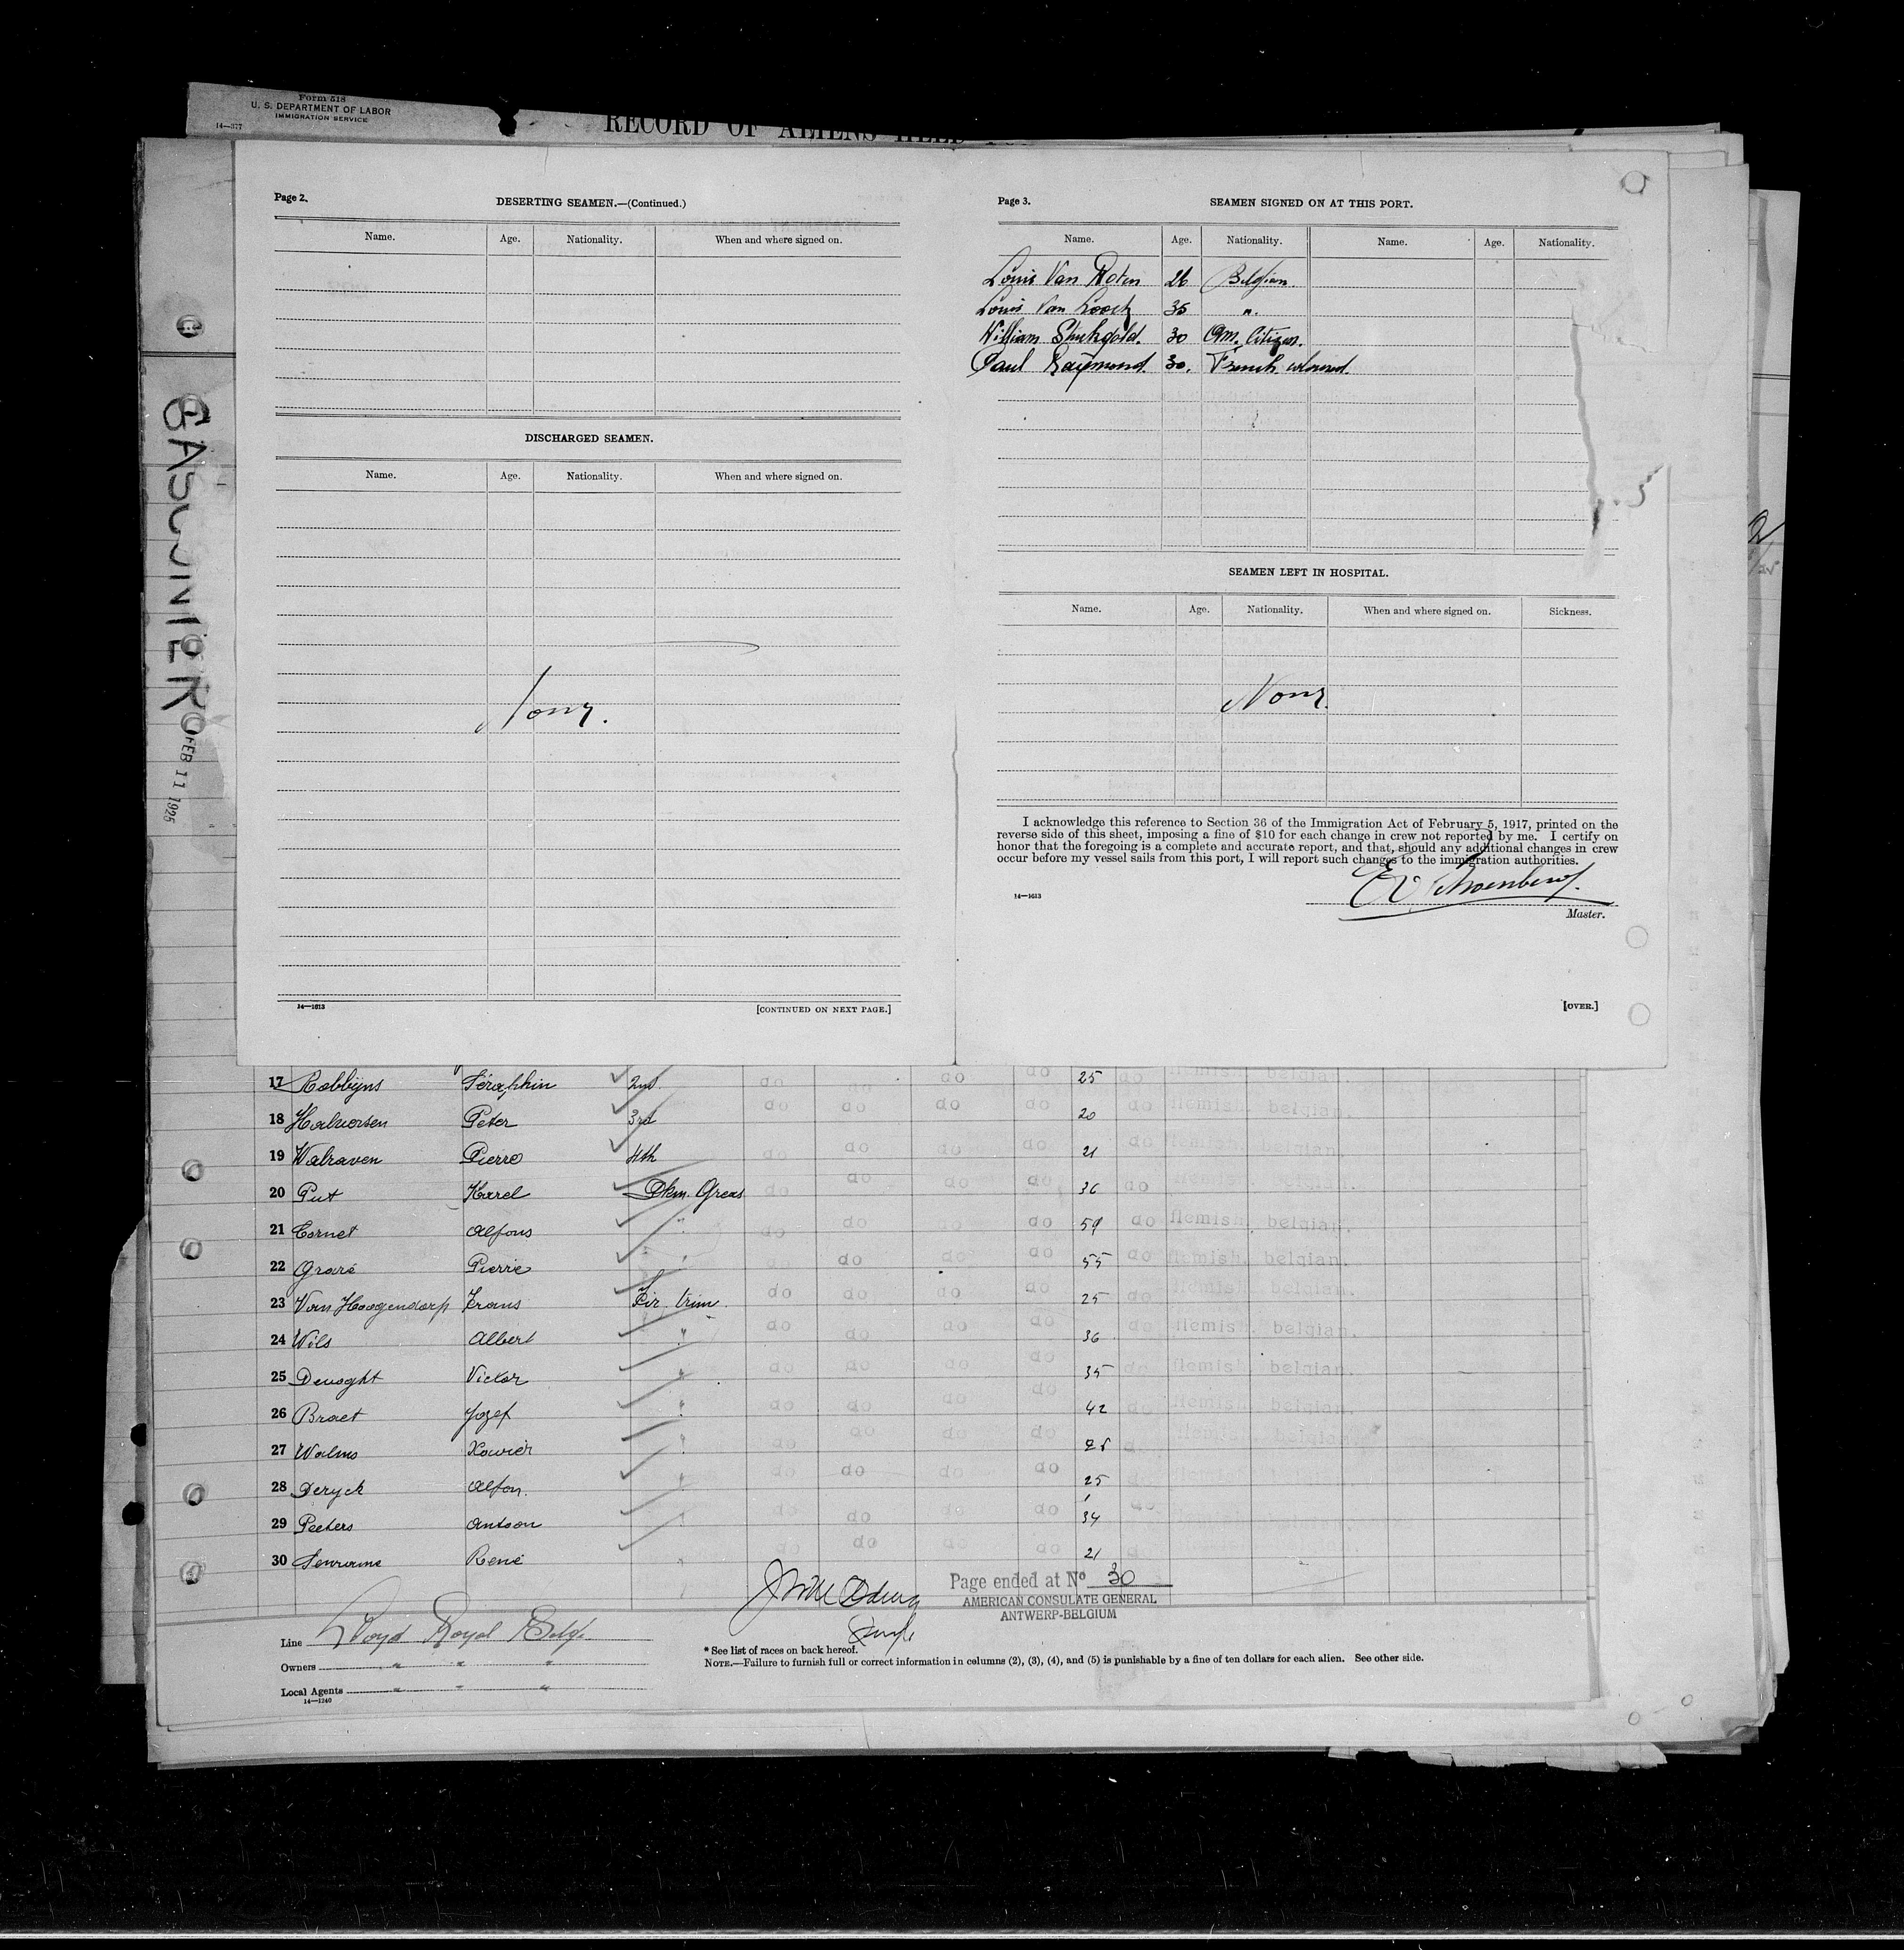 Form 518
U. S. DEPARTMENT OF LABOR
IMMIGRATION SERVICE
14—377
RECORD OF ALIENS HELD
GASCONIER
FEB 11 1925
Page 2.
DESERTING SEAMEN.—(Continued.)
Name. Age. Nationality. When and where signed on.
DISCHARGED SEAMEN.
Name. Age. Nationality. When and where signed on.
None.
14—1613
[CONTINUED ON NEXT PAGE.]
Page 3.
SEAMEN SIGNED ON AT THIS PORT.
Name. Age. Nationality. Name. Age. Nationality.
Louis Van 26 Belgian.
Louis Van Loock 35 "
William 30 Am. Citizen.
Paul Raymond. 30. French coloured.
SEAMEN LEFT IN HOSPITAL.
Name. Age. Nationality. When and where signed on. Sickness.
None.
I acknowledge this reference to Section 36 of the Immigration Act of February 5, 1917, printed on the
reverse side of this sheet, imposing a fine of $10 for each change in crew not reported by me. I certify on
honor that the foregoing is a complete and accurate report, and that, should any additional changes in crew
occur before my vessel sails from this port, I will report such changes to the immigration authorities.
14—1613
Master.
[OVER.]
17 Robbijns Séraphin 2nd do do do 25 do flemish belgian
18 Halvorsen Peter 3rd do do do do 20 do flemish belgian
19 Walraven Pierre 4th do do do do 21 do flemish belgian
20 Put Karel Dkm. Greas do do do do 36 do flemish belgian.
21 Cornet Alfons " do do do do 59 do flemish belgian.
22 Graré Pierre " do do do 55 do flemish belgian.
23 Van Hoogendorp Frans Fir. trim. do do do do 25 do flemish belgian.
24 Wils Albert " do do do do 36 do flemish belgian.
25 Victor " do do do do 35 do flemish belgian.
26 Braet Jozef " do do do do 42 do flemish belgian.
27 Walms Xavier " do do do do 25 do flemish belgian.
28 Deryck Alfon. " do do do do 25 do
29 Peeters Antoon " do do do 34 do
30 René " do do do do 21 do
Page ended at No 30
AMERICAN CONSULATE GENERAL
ANTWERP-BELGIUM
Line Lloyd Royal Belge
Owners " " "
Local Agents " " "
14—1240
* See list of races on back hereof.
NOTE.—Failure to furnish full or correct information in columns (2), (3), (4), and (5) is punishable by a fine of ten dollars for each alien. See other side.